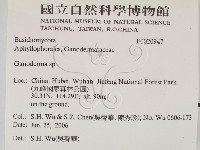 國立自然科學博物館
NATIONAL MUSEUM OF NATURAL SCIENCE
TAICHUNG, TAIWAN, R.O.CHINA
Basidiomycota F0020947
Aphyllophorales, Ganodermataceae
Ganoderma sp
Loc: China, Hubei, Wuhan, Jiufeng National Forest Park
(九峰國家森林公園)
30.31N, 114.29E, alt. 90m,
on the ground.
Col: S.H. Wu & S.Z. Chen No. Wu 0606-173
Date: Jun. 25, 2006
Det: S.H. Wu